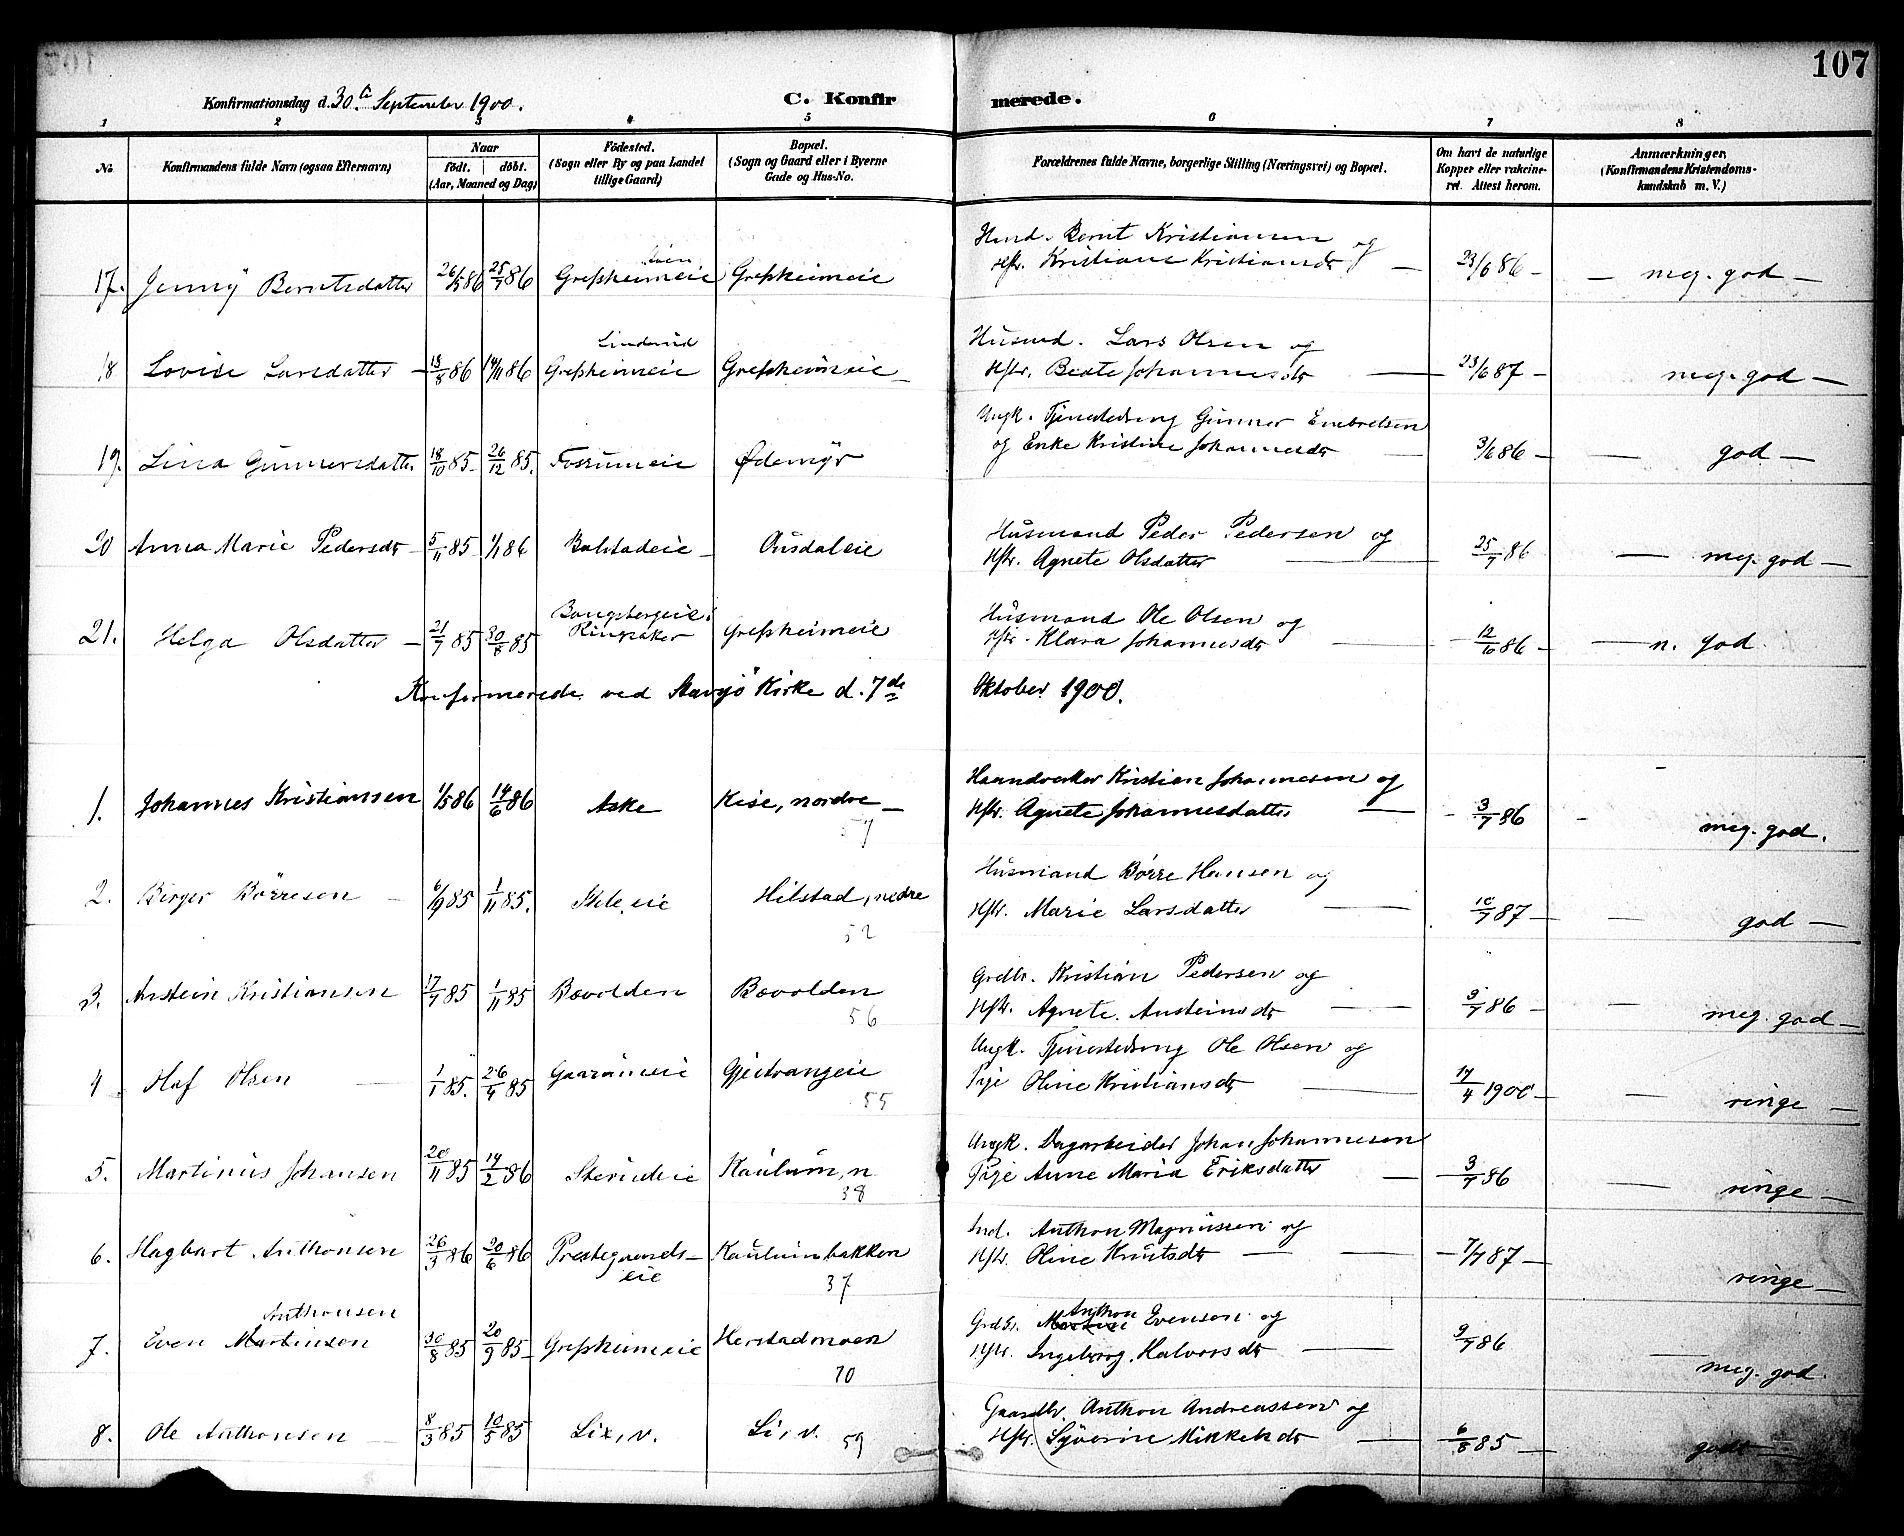 107
Konfirmationsdag d. 30te September 1900. C. Konfirmerede.
1 2 3 4 5 6 7 8
No. Konfirmandens fulde Navn (ogsaa Efternavn) Naar født. døbt. (Aar, Maaned og Dag) Fødested. (Sogn eller By og paa Landet tillige Gaard) Bopæl. (Sogn og Gaard eller i Byerne Gade og Hus-No. Forældrenes fulde Navne, borgerlige Stilling (Næringsvei) og Bopæl. Om havt de naturlige Kopper eller vakcineret. Attest herom. Anmærkninger. (Konfirmandens Kristendomskundskab m. V.)
Hmd. Bernt Kristiansen og
17. Jenny Berntsdatter 26/5 86 25/7 86 Grefsheimeie Grefsheimeie Hstr. Kristiane Kristiansdr 23/6 86 — meg. god —
Linderud Husmd. Lars Olsen og
18 Lovise Larsdatter 18/8 86 14/11 86 Grefsheimeie Grefsheimeie Hstr. Beate Johannesdr 23/6 87 — meg. god —
Ungk. Tjenestedreng Gunner Embretsen
19. Lina Gunnersdatter 18/10 85 26/12 85. Fossumeie Ødemyr og Enke Kristine Johannesdr 3/6 86 — god —
Husmand Peder Pedersen og
20 Anna Marie Pedersdr 5/11 85 1/1 86 Balstadeie Ousdaleie Hstr. Agnete Olsdatter 25/7 86 — meg. god —
Bangsbergeie Husmand Ole Olsen og
21. Helga Olsdatter 21/7 85 30/8 85 Ringsaker Grefsheimeie Hstr. Klara Johannesdr 12/6 86 — n. god.
Konfirmerede ved Stavsjø Kirke d. 7de Oktober 1900.
Haandverker Kristian Johannesen og
1. Johannes Kristiansen 1/5 86 14/6 86 Aske Kise, nordre 57 Hstr. Agnete Johannesdatter 3/7 86 meg. god.
Husmand Børre Hansen og
2. Birger Børresen 6/9 85 1/11 85. Hilstad, nedre 52 Hstr. Marie Larsdatter 10/7 87 — god —
Grdbr. Kristian Pedersen og
3. Anstein Kristiansen 17/9 85 1/11 85 Bævolden Bævolden 56 Hstr. Agnete Ansteinsdr 3/7 86 — meg. god —
Ungk. Tjenestedreng Ole Olsen og
4 Olaf Olsen 1/1 85. 26/4 85 Gaarumeie 55 Pige Oline Kristiansdr 17/4 1900 — ringe —
Ungk. Dagarbeider Johan Johannesen
5. Martinius Johansen 20/11 85 14/2 86 Kaulum, n 38 Pige Anne Maria Eriksdatter 3/7 86 — ringe —
Ind. Anthon Magnussen og
6. Hagbart Anthonsen 26/3 86 20/6 86 Prestegaards- Kaulumbakken Hstr. Oline Knutsdr 7/7 87 — ringe —
eie 37
Anthonsen Grdbr. Anthon Evenson og
7. Even Martinson 30/8 85 20/9 85 Grefsheimeie Herstadmoen 70 Hstr. Ingeborg Halvorsdr 9/7 86 — meg. god.
Gaardbr. Anthon Andreassen og
8. Ole Anthonsen 8/3 85 10/5 85 Lie, v. Li, v. 59 Hstr. Syverine Mikkelsdr 6/8 85 — godt —